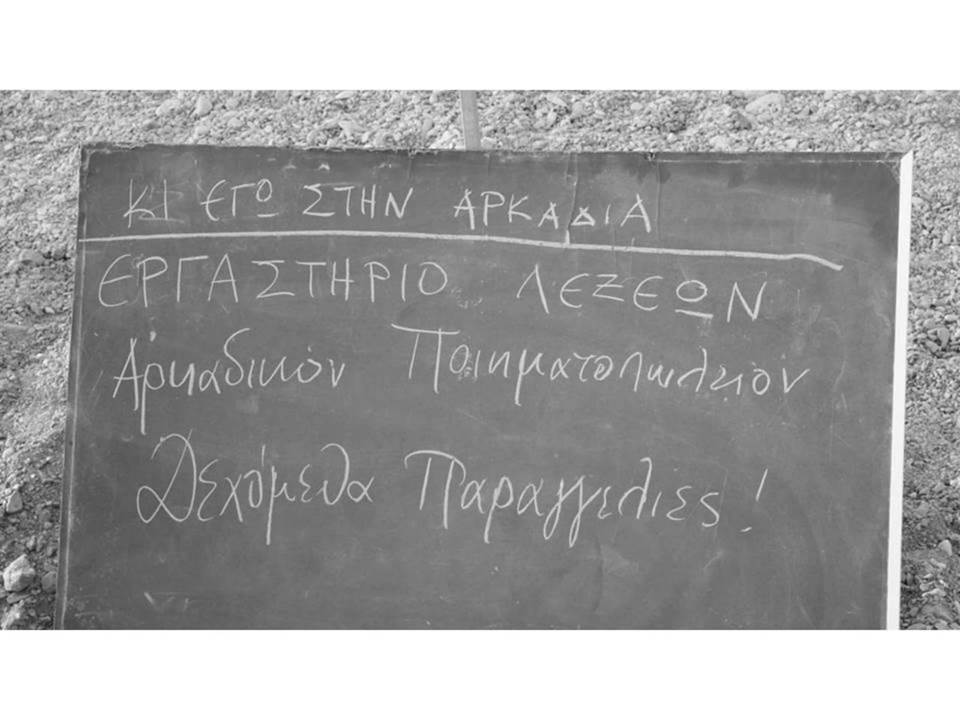 ΚΙ ΕΓΩ ΣΤΗΝ ΑΡΚΑΔΙΑ
ΕΡΓΑΣΤΗΡΙΟ ΛΕΞΕΩΝ
Αρκαδικόν Ποιηματοπωλείον
Δεχόμεθα Παραγγελίες!